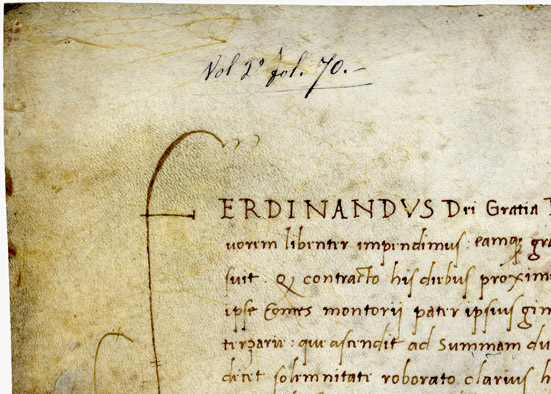 Vol 2º fol. 70.-
FERDINANDVS Dei Gratia
uorem libenter impendimus: eamqꝫ gra
fuit. Qꝫ contracto his diebus proxim
ipse Comes montorii pater ipsius gin
terparie: que ascendit ad Summam du
decet solemnitate roborato clarius h